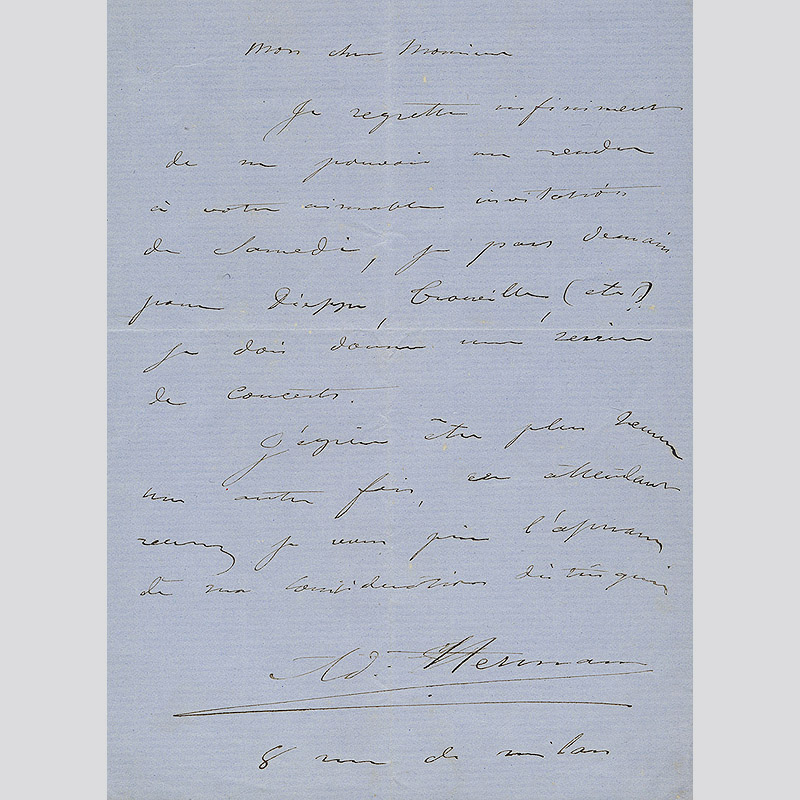 Mon cher Monsieur
Je regrette infiniment
de ne pouvoir me rendre
à votre aimable invitation
de Samedi, je pars demain
pour Dieppe, Trouville (etc)
je dois donner une serie
de concerts.
J'espère être plus heureux
une autre fois, en attendant
recevez je vous prie l'assurance
de ma consideration distinguée
Ad. Herman
8 rue de milan